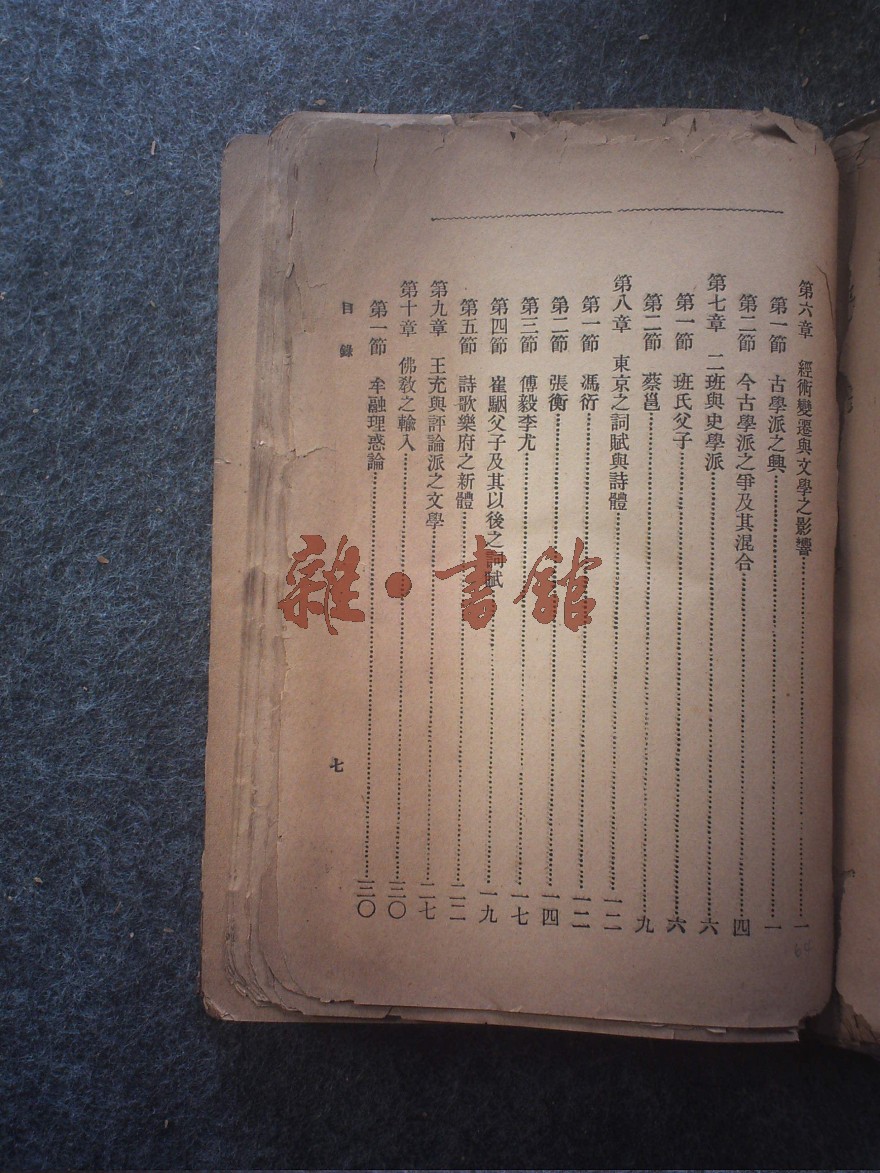 第六章 經術變遷與文學之影響……一
第一節 古學派之興……一
第二節 今古學派之爭及其混合……四
第七章 二班與史學派……六
第一節 班氏父子……六
第二節 蔡邕……九
第八章 東京之詞賦與詩體……一二
第一節 馮衍……一二
第二節 張衡……一四
第三節 傅毅李尤……一七
第四節 崔駰父子及其以後之詞賦……一九
第五節 詩歌樂府之新體……二二
第九章 王充與評論派之文學……二七
第十章 佛敎之輸入……三〇
第一節 牟融理惑論……三〇
目錄
七
雜·書館
64